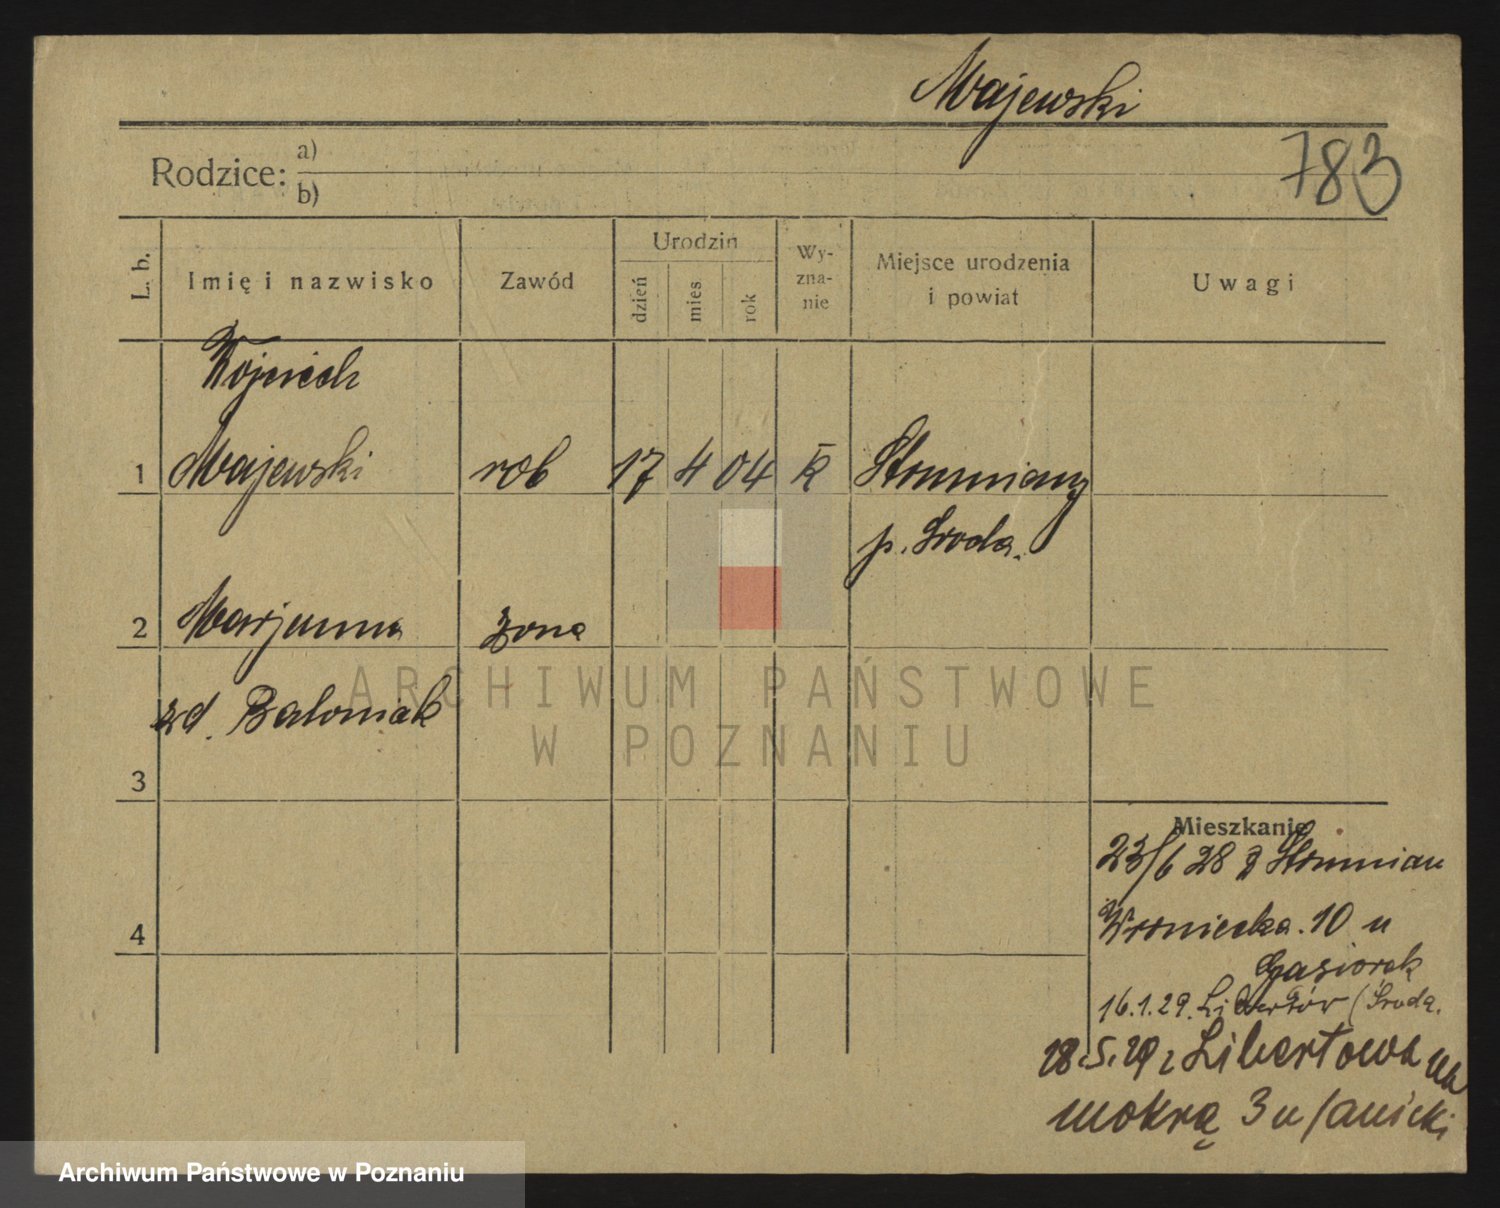 Majewski
783
Rodzice: a)
b)
L. b.
Imię i nazwisko
Zawód
Urodzin
dzień
mies
rok
Wy-
zna-
nie
Miejsce urodzenia
i powiat
Uwagi
Wojciech
1 Majewski rob 17 4 04 K Stromiany
p. Sroda.
2 Marjanna żona
zd. Balomiak
3
4
Mieszkanie
23/6 28 z
Wroniecka. 10 u
Gasiorek
16.1.29. Libertów (Środa.
28.5.29 z Libertowa na
mokrą 3 u Janicki
ARCHIWUM PAŃSTWOWE
W POZNANIU
Archiwum Państwowe w Poznaniu